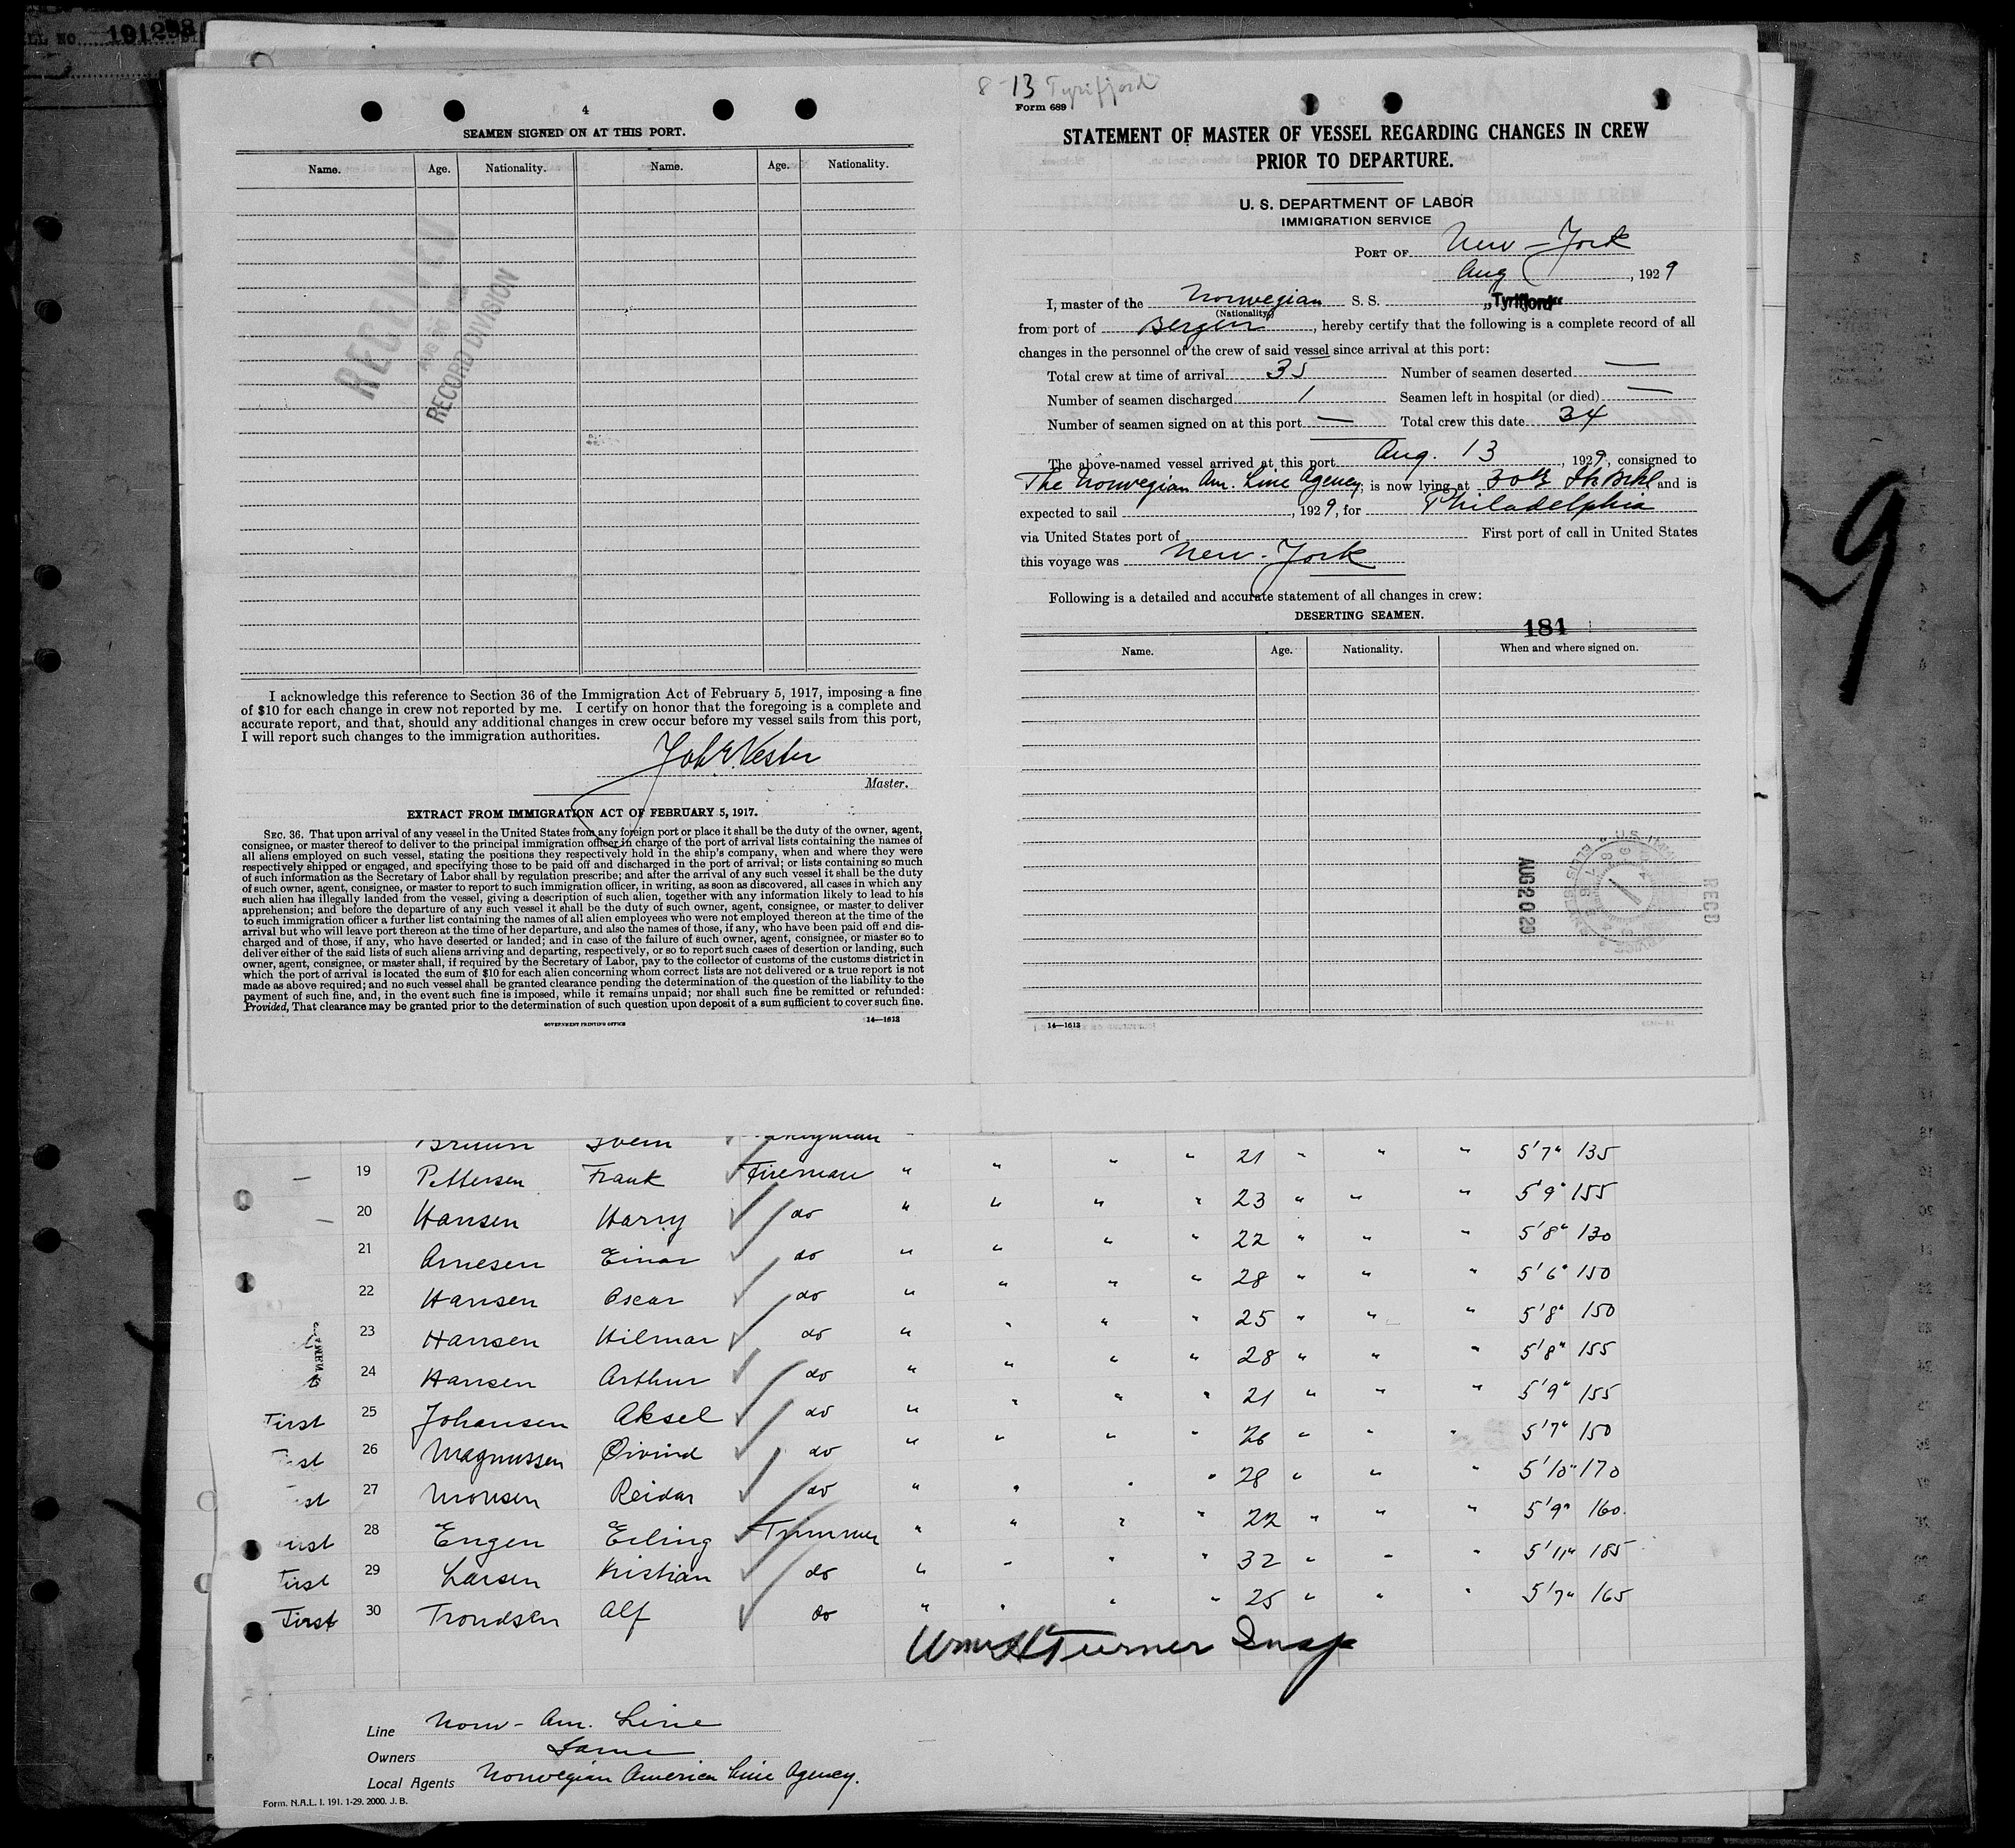 191298
4
SEAMEN SIGNED ON AT THIS PORT.
Name. Age. Nationality. Name. Age. Nationality.
RECEIVED
RECORD DIVISION
I acknowledge this reference to Section 36 of the Immigration Act of February 5, 1917, imposing a fine
of $10 for each change in crew not reported by me. I certify on honor that the foregoing is a complete and
accurate report, and that, should any additional changes in crew occur before my vessel sails from this port,
I will report such changes to the immigration authorities.
Master.
EXTRACT FROM IMMIGRATION ACT OF FEBRUARY 5, 1917.
SEC. 36. That upon arrival of any vessel in the United States from any foreign port or place it shall be the duty of the owner, agent,
consignee, or master thereof to deliver to the principal immigration officer in charge of the port of arrival lists containing the names of
all aliens employed on such vessel, stating the positions they respectively hold in the ship's company, when and where they were
respectively shipped or engaged, and specifying those to be paid off and discharged in the port of arrival; or lists containing so much
of such information as the Secretary of Labor shall by regulation prescribe; and after the arrival of any such vessel it shall be the duty
of such owner, agent, consignee, or master to report to such immigration officer, in writing, as soon as discovered, all cases in which any
such alien has illegally landed from the vessel, giving a description of such alien, together with any information likely to lead to his
apprehension; and before the departure of any such vessel it shall be the duty of such owner, agent, consignee, or master to deliver
to such immigration officer a further list containing the names of all alien employees who were not employed thereon at the time of the
arrival but who will leave port thereon at the time of her departure, and also the names of those, if any, who have been paid off and dis-
charged and of those, if any, who have deserted or landed; and in case of the failure of such owner, agent, consignee, or master so to
deliver either of the said lists of such aliens arriving and departing, respectively, or so to report such cases of desertion or landing, such
owner, agent, consignee, or master shall, if required by the Secretary of Labor, pay to the collector of customs of the customs district in
which the port of arrival is located the sum of $10 for each alien concerning whom correct lists are not delivered or a true report is not
made as above required; and no such vessel shall be granted clearance pending the determination of the question of the liability to the
payment of such fine, and, in the event such fine is imposed, while it remains unpaid; nor shall such fine be remitted or refunded:
Provided, That clearance may be granted prior to the determination of such question upon deposit of a sum sufficient to cover such fine.
GOVERNMENT PRINTING OFFICE 14—1613
8-13 Tyrifjord
Form 689
STATEMENT OF MASTER OF VESSEL REGARDING CHANGES IN CREW
PRIOR TO DEPARTURE.
U. S. DEPARTMENT OF LABOR
IMMIGRATION SERVICE
PORT OF New-York
Aug , 1929
I, master of the Norwegian S. S. „Tyrifjord"
(Nationality)
from port of Bergen, hereby certify that the following is a complete record of all
changes in the personnel of the crew of said vessel since arrival at this port:
Total crew at time of arrival 35 Number of seamen deserted —
Number of seamen discharged 1 Seamen left in hospital (or died) —
Number of seamen signed on at this port — Total crew this date 34
The above-named vessel arrived at this port Aug. 13, 1929, consigned to
The Norwegian Am. Line Agency; is now lying at 30th St Bkl and is
expected to sail , 1929, for Philadelphia
via United States port of First port of call in United States
this voyage was New-York
Following is a detailed and accurate statement of all changes in crew:
DESERTING SEAMEN.
181
Name. Age. Nationality. When and where signed on.
AUG 20 29
RECD
14—1613
9
Bruun Svein
19 Pettersen Frank Fireman " " " " 21 " " " 5'7" 135
20 Hansen Harry do " " " " 23 " " " 5'9" 155
21 Arnesen Einar do " " " " 22 " " " 5'8" 130
22 Hansen Oscar do " " " " 28 " " " 5'6" 150
23 Hansen Hilmar do " " " " 25 " " " 5'8" 150
24 Hansen Arthur do " " " " 28 " " " 5'8" 155
First 25 Johansen Aksel do " " " " 21 " " " 5'9" 155
st 26 Magnussen Øivind do " " " " 26 " " " 5'7" 150
st 27 Monsen Reidar do " " " " 28 " " " 5'10" 170
irst 28 Engen Erling Trimmer " " " " 22 " " " 5'9" 160.
First 29 Larsen Kristian do " " " " 32 " " " 5'11" 185
First 30 Trondsen Alf do " " " " 25 " " " 5'7" 165
Wm H Turner Insp
Line Norw-Am. Line
Owners Same
Local Agents Norwegian America Line Agency.
Form. N.A.L. I. 191. 1-29. 2000. J. B.